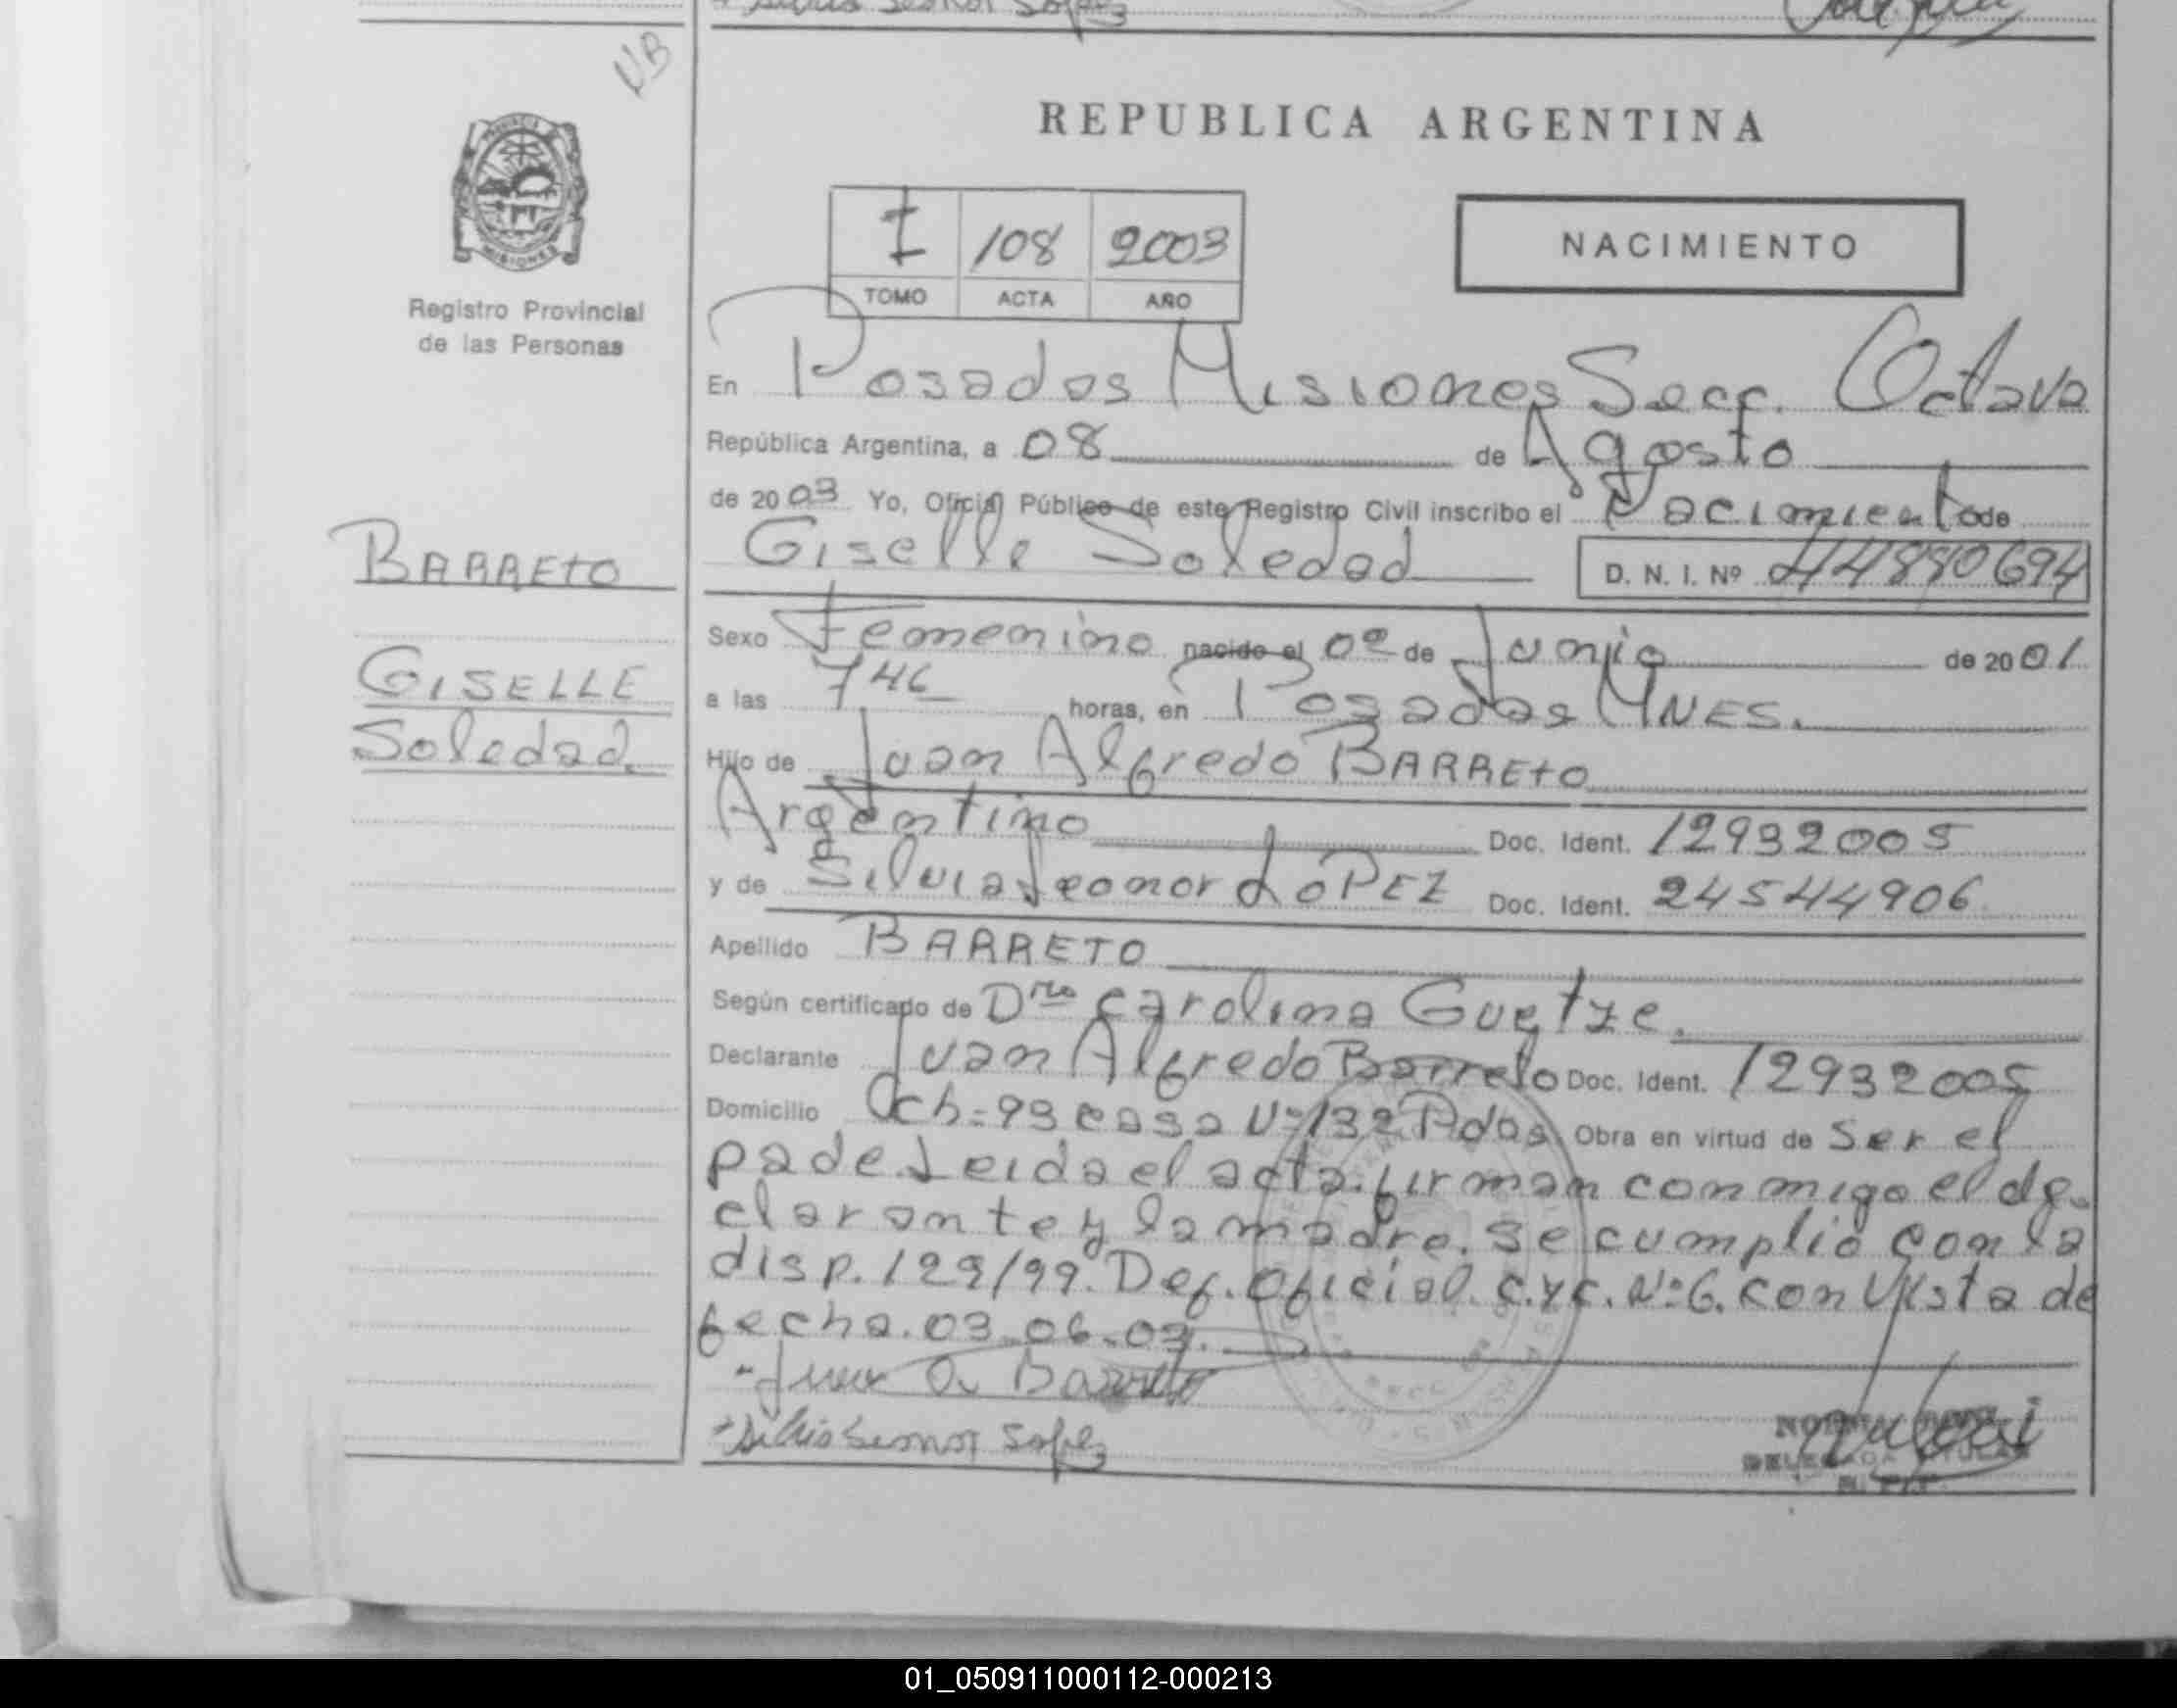 NB
REPUBLICA ARGENTINA
PROVINCIA
MISIONES
Registro Provincial
de las Personas
I 108 2003
TOMO ACTA AÑO
NACIMIENTO
En Posadas Misiones Secc. Octava
República Argentina, a 08 de Agosto
de 2003 Yo, Oficial Público de este Registro Civil inscribo el Nacimiento de
BARRETO
GISELLE
Soledad.
Giselle Soledad D. N. I. Nº 44880694
Sexo Femenino nacido el 02 de Junio de 2001
a las 746 horas, en Posadas MNES.
Hijo de Juan Alfredo BARRETO
Argentino Doc. Ident. 12932005
y de Silvia Leonor LOPEZ Doc. Ident. 24544906
Apellido BARRETO
Según certificado de Dra Carolina Guetze.
Declarante Juan Alfredo Barreto Doc. Ident. 12932005
Domicilio Ch=93 casa Nº132 Pdas Obra en virtud de Ser el
pade Leida el acta. firman conmigo el de-
clarante y la madre. Se cumplio con la
disp. 129/99. Def. Oficial. C.yC. Nº6. con Vista de
fecha. 03-06-03.
Juan A. Barreto
Silvia Leonor Lopez
DELEGADA TITULAR
01_050911000112-000213